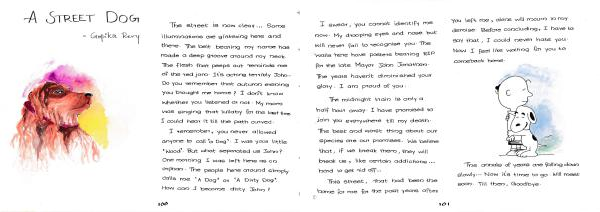 A STREET DOG
- Gopika Remy
The street is now clear... Some
illuminations are glistening here and
there. The best bearing my name has
made a deep groove around my neck.
The flesh that peeps out reminds me
of the red jaro. It's aching terribly John.
Do you remember that autumn evening
you thought me home? I don't know
whether you listened or not. My mom
was singing that lullaby for the last time
I could hear it till the path curved.
I remember, you never allowed
anyone to call 'a Dog'. I was your little
But what separated us John?
One morning I was left here as an
orphan. The people here around simply
calls me "A Dog" or "A Dirty Dog".
How can I become dirty John?
100
I swear, you cannot identify me
now. My drooping eyes and nose but
will never fail to recognise you. The
walls here have posters bearing RIP
for the late Mayor John Jonathan.
The years haven't diminished your
glory. I am proud of you.
The midnight train is only a
half hour away. I have promised to
join you everywhen till my death.
The best and worst thing about our
species are our promises. We believe
that, if we break them, they will
break us, like certain addictions...
hard to get rid off..
This street, that had been the
home for me for the past years after
you left me, alone will mourn in my
demise. Before concluding, I have to
say that, I could never hate you.
Now I feel like waiting for you to
comeback home.
The annals of years are falling down
slowly... Now it's time to go. Will meet
soon. Till then, Goodbye.
101